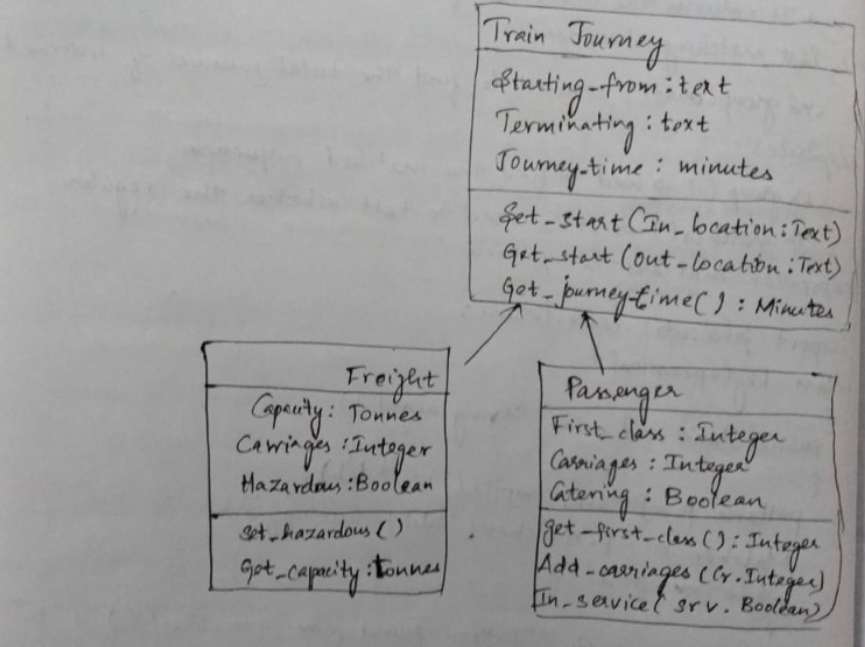 Train Journey
Starting-from : text
Terminating : text
Journey-time : minutes
Set-start (In-location : Text)
Get-start (out-location : Text)
Get-journey-time() : Minutes
Freight
Capacity : Tonnes
Carriages : Integer
Hazardous : Boolean
set-hazardous()
Get-capacity : tonnes
Passenger
First-class : Integer
Carriages : Integer
Catering : Boolean
get-first-class() : Integer
Add-carriages (Cr. Integer)
In-service( srv. Boolean)